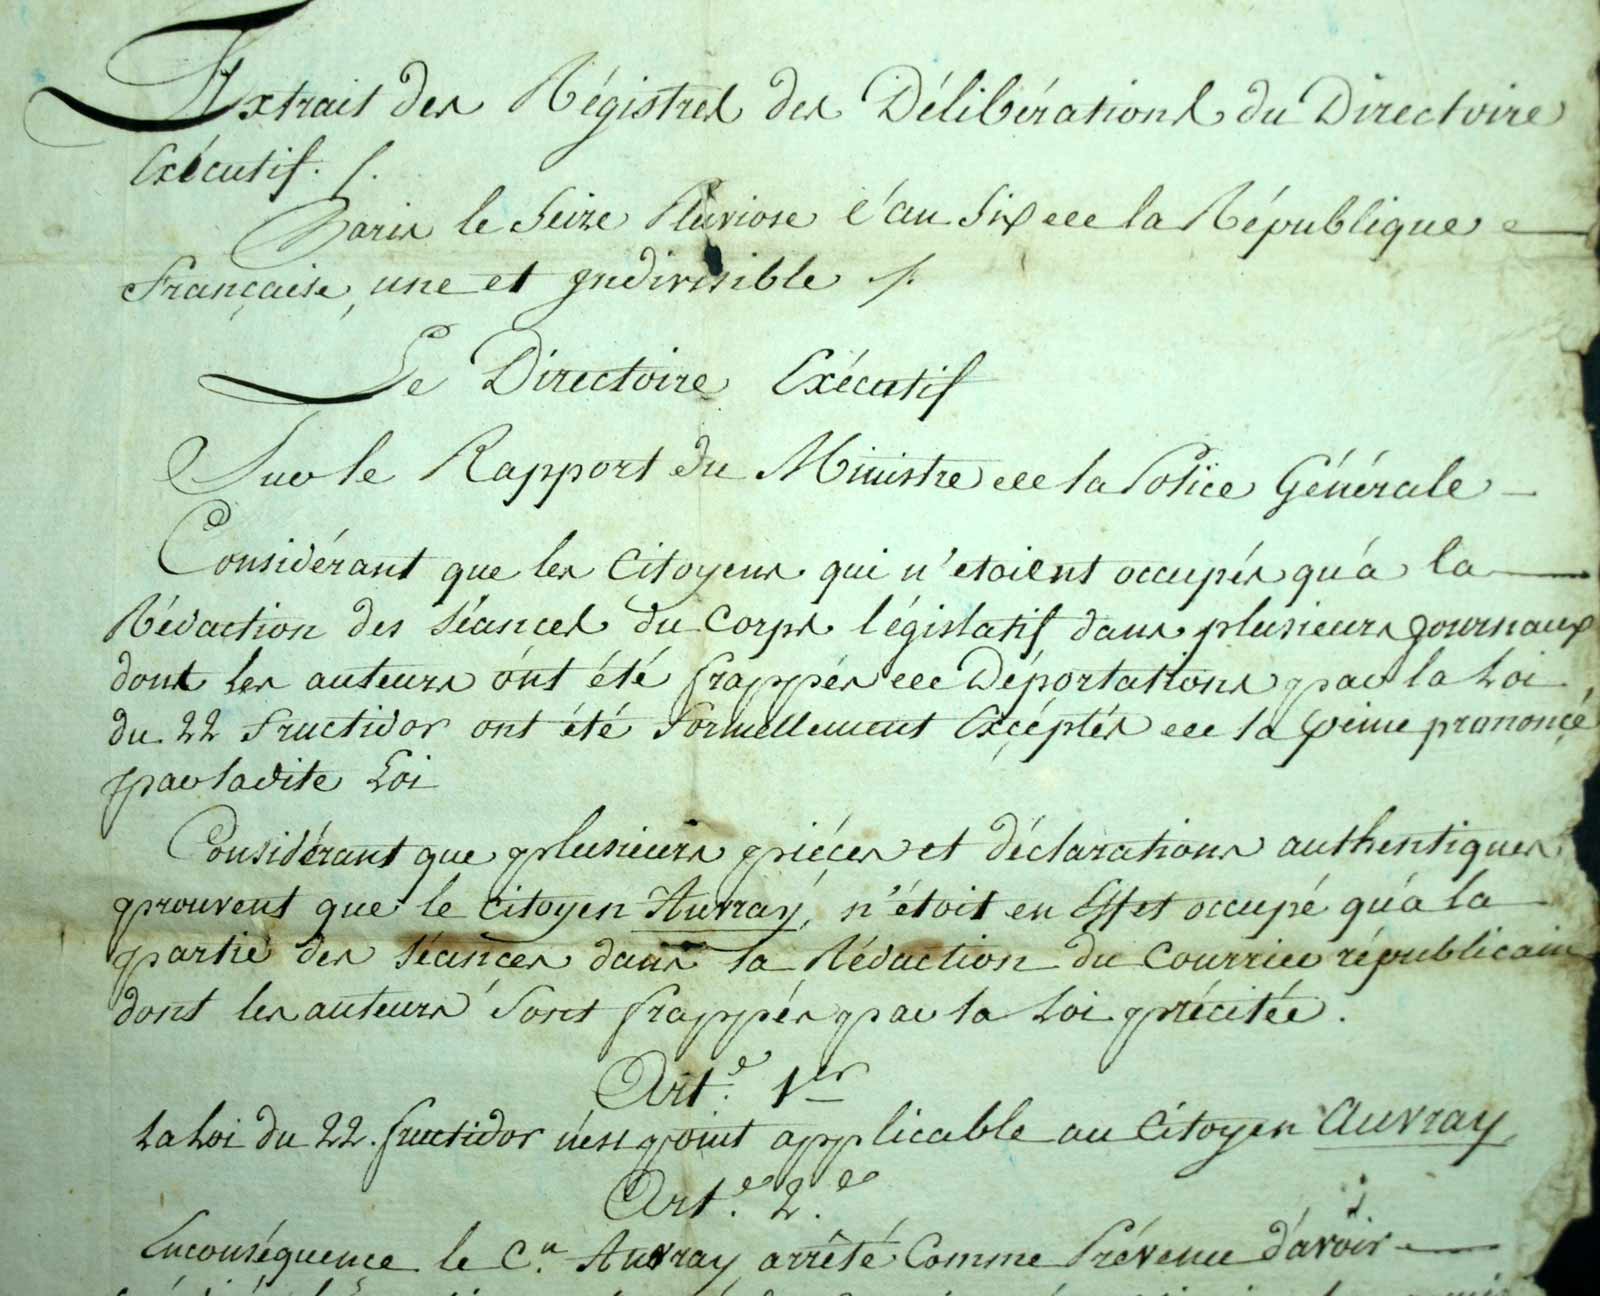 Extrait des Régistres des Délibérations du Directoire
Exécutif.
Paris le Seize Pluviose l'an Six de la République
Française, une et Indivisible
Le Directoire Exécutif
Sur le Rapport du Ministre de la Police Générale
Considérant que les Citoyens qui n'etoient occupés qu'à la
Rédaction des Séances du Corps législatif dans plusieurs journaux
dont les auteurs ont été frappés de Déportations par la Loi
du 22 fructidor ont été formellement Excéptés de la peine prononcé
par ladite Loi
Considérant que plusieurs piéces et déclarations authentiques
prouvent que le Citoyen Auvray, n'étoit en Effet occupé qu'à la
partie des Séances dans la Rédaction du Courrier républicain
dont les auteurs sont frappés par la Loi précitée.
Art.e 1er
La Loi du 22. fructidor n'est point applicable au Citoyen Auvray
Art.e 2.e
Enconséquence le C.n Auvray arrêté Comme Prévenu d'avoir